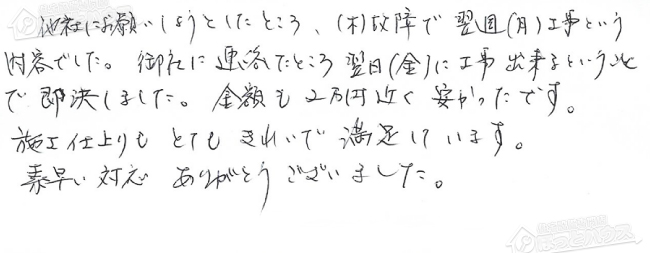 他社にお願いしようとしたところ、(木)故障で翌週(月)工事という
内容でした。御社に連絡したところ翌日(金)に工事出来るということ
で即決しました。金額も2万円近く安かったです。
施工仕上りもとてもきれいで満足しています。
素早い対応ありがとうございました。